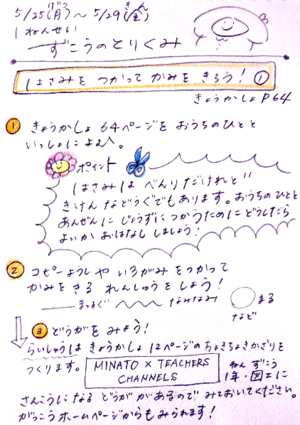 5/25(月)〜5/29(金)
1ねんせい
ずこうのとりくみ
はさみを つかって かみを きろう! ①
きょうかしょ P64
① きょうかしょ 64ページを おうちのひとと
いっしょによむ。
ポイント
はさみは べんりだけれど
きけんなどうぐでもあります。おうちのひとと
あんぜんに じょうずに つかうために どうしたら
よいか おはなし しましょう!
② コピーようしや いろがみを つかって
かみをきる れんしゅうを しよう!
まっすぐ なみなみ まる
など
③ どうがを みよう!
らいしゅうは きょうかしょ 12ページの ちょきちょきかざりを
つくります。
MINATO × TEACHERS
CHANNELS
ねん ずこう
1年・図工に
さんこうになる どうがが あるので みておいてください。
がっこうホームページからも みられます!